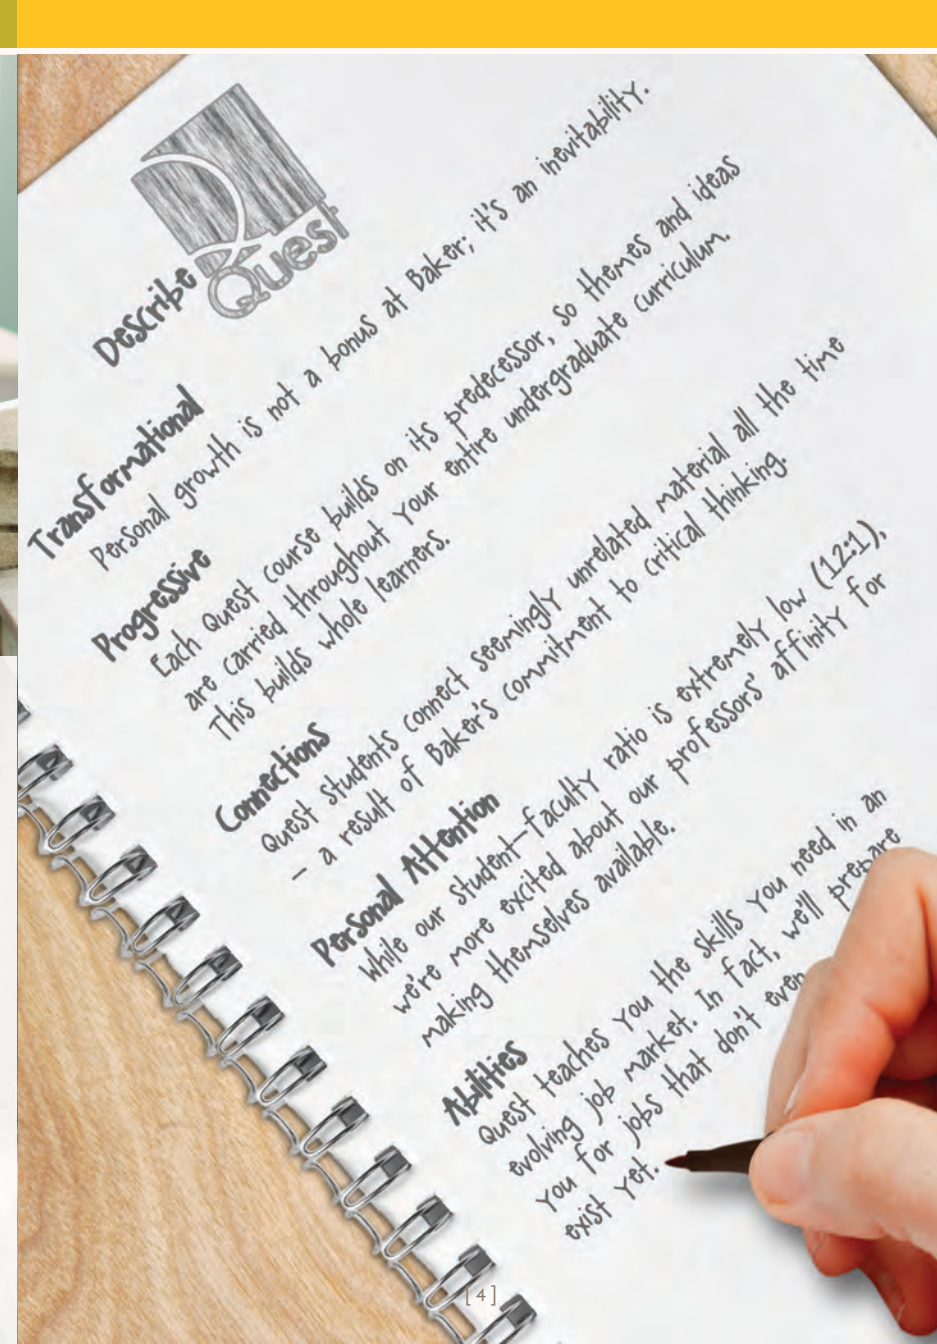 Describe Quest
Transformational
Personal growth is not a bonus at Baker; it's an inevitability.
Progressive
Each Quest course builds on its predecessor, so themes and ideas
are carried throughout your entire undergraduate curriculum.
This builds whole learners.
Connections
Quest students connect seemingly unrelated material all the time
– a result of Baker's commitment to critical thinking.
Personal Attention
While our student–faculty ratio is extremely low (12:1),
we're more excited about our professors' affinity for
making themselves available.
Abilities
Quest teaches you the skills you need in an
evolving job market. In fact, we'll prepare
you for jobs that don't even
exist yet.
[ 4 ]